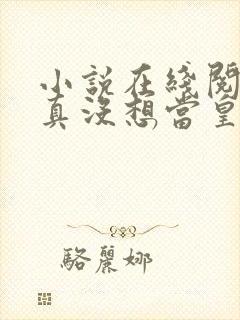 小說在綫閱
真沒想當皇
駱麗娜